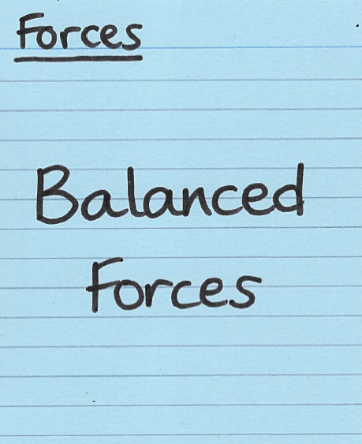 Forces
Balanced
Forces